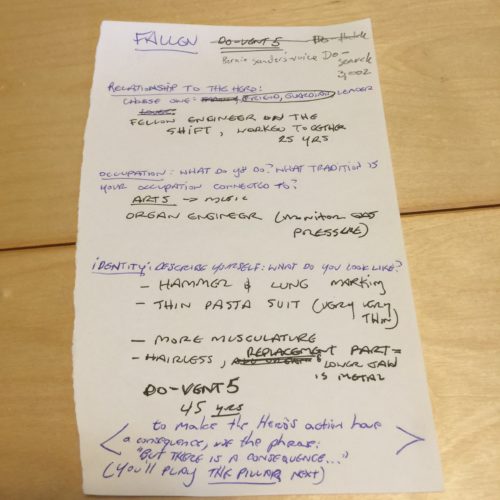 FALLEN DO-VENT 5
Bernie Sanders voice Do-
search
3,002
RELATIONSHIP TO THE HERO:
CHOOSE ONE: FRIEND, GUARDIAN, LEADER
LOVER
FELLOW ENGINEER ON THE
SHIFT, WORKED TOGETHER
25 YRS
OCCUPATION: WHAT DO YOU DO? WHAT TRADITION IS
YOUR OCCUPATION CONNECTED TO?
ARTS → MUSIC
ORGAN ENGINEER (MONITOR GAS
PRESSURE)
IDENTITY: DESCRIBE YOURSELF: WHAT DO YOU LOOK LIKE?
- HAMMER & LUNG MARKING
- THIN PASTA SUIT (VERY VERY
THIN)
- MORE MUSCULATURE
- HAIRLESS, REPLACEMENT PART =
LOWER JAW
IS METAL
DO-VENT 5
45 YRS
to make the Hero's action have
a consequence, use the phrase:
"BUT THERE IS A CONSEQUENCE..."
(YOU'LL PLAY THE PILLAR NEXT)